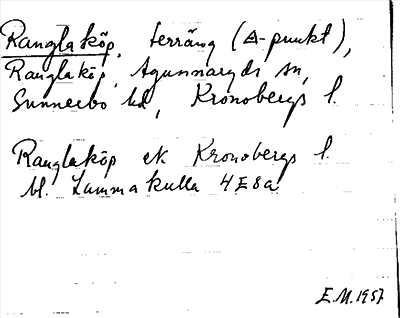 Ranglaköp, terräng (△-punkt),
Ranglaköp, Agunnaryds sn,
Sunnerbo hd, Kronobergs l.
Ranglaköp ek Kronobergs l.
bl. Lammakulla 4E8a
E.M. 1957